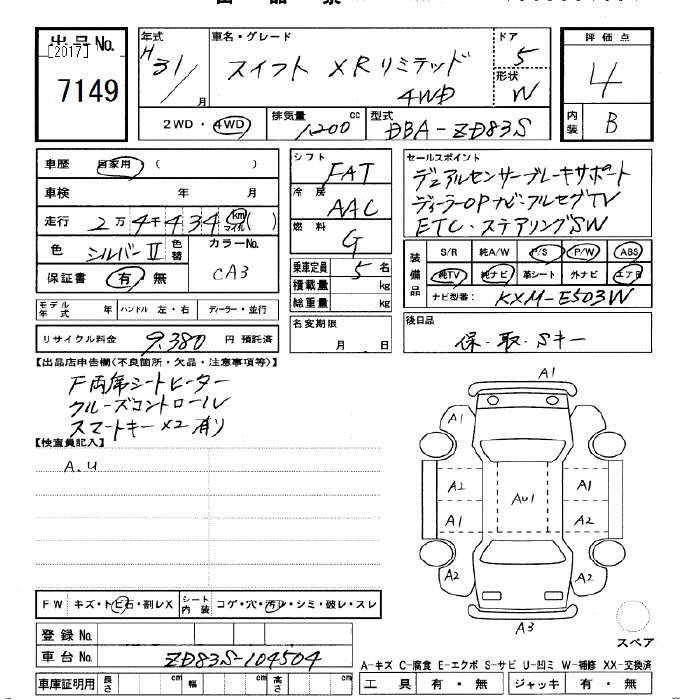 出品No.
[2017]
7149
年式 H 31/ 月
車名・グレード スイフト XRリミテッド 4WD
ドア 5
形状 W
評価点 4
内装 B
2WD・4WD 排気量 1200 cc 型式 DBA-ZD83S
車歴 自家用 ( )
車検 年 月
走行 2万4千434 km マイル ( )
色 シルバーII 色替 カラーNo. CA3
保証書 有・無
シフト FAT
冷房 AAC
燃料 G
乗車定員 5 名
積載量 kg
総重量 kg
セールスポイント
デュアルセンサーブレーキサポート
ディーラーOPナビ・フルセグTV
ETC・ステアリングSW
装備品 S/R 純A/W P/S P/W ABS
純TV 純ナビ 革シート 外ナビ エアB
ナビ型番: KXM-E503W
モデル年式 年 ハンドル 左・右 ディーラー・並行
リサイクル料金 9,380 円 預託済
名変期限 月 日
後日品 保・取・Sキー
【出品店申告欄(不良箇所・欠品・注意事項等)】
F両席シートヒーター
クルーズコントロール
スマートキー×2有り
【検査員記入】
A.U
A1
A1 A1
A2 A1
AU1
A1 A2
A2 A2
A3
スペア
FW キズ・トビ石・割レX シート内装 コゲ・穴・汚レ・シミ・破レ・スレ
登録No.
車台No. ZD83S-104504
車庫証明用 長さ cm 幅 cm 高さ cm
A-キズ C-腐食 E-エクボ S-サビ U-凹ミ W-補修 XX-交換済
工具 有・無 ジャッキ 有・無